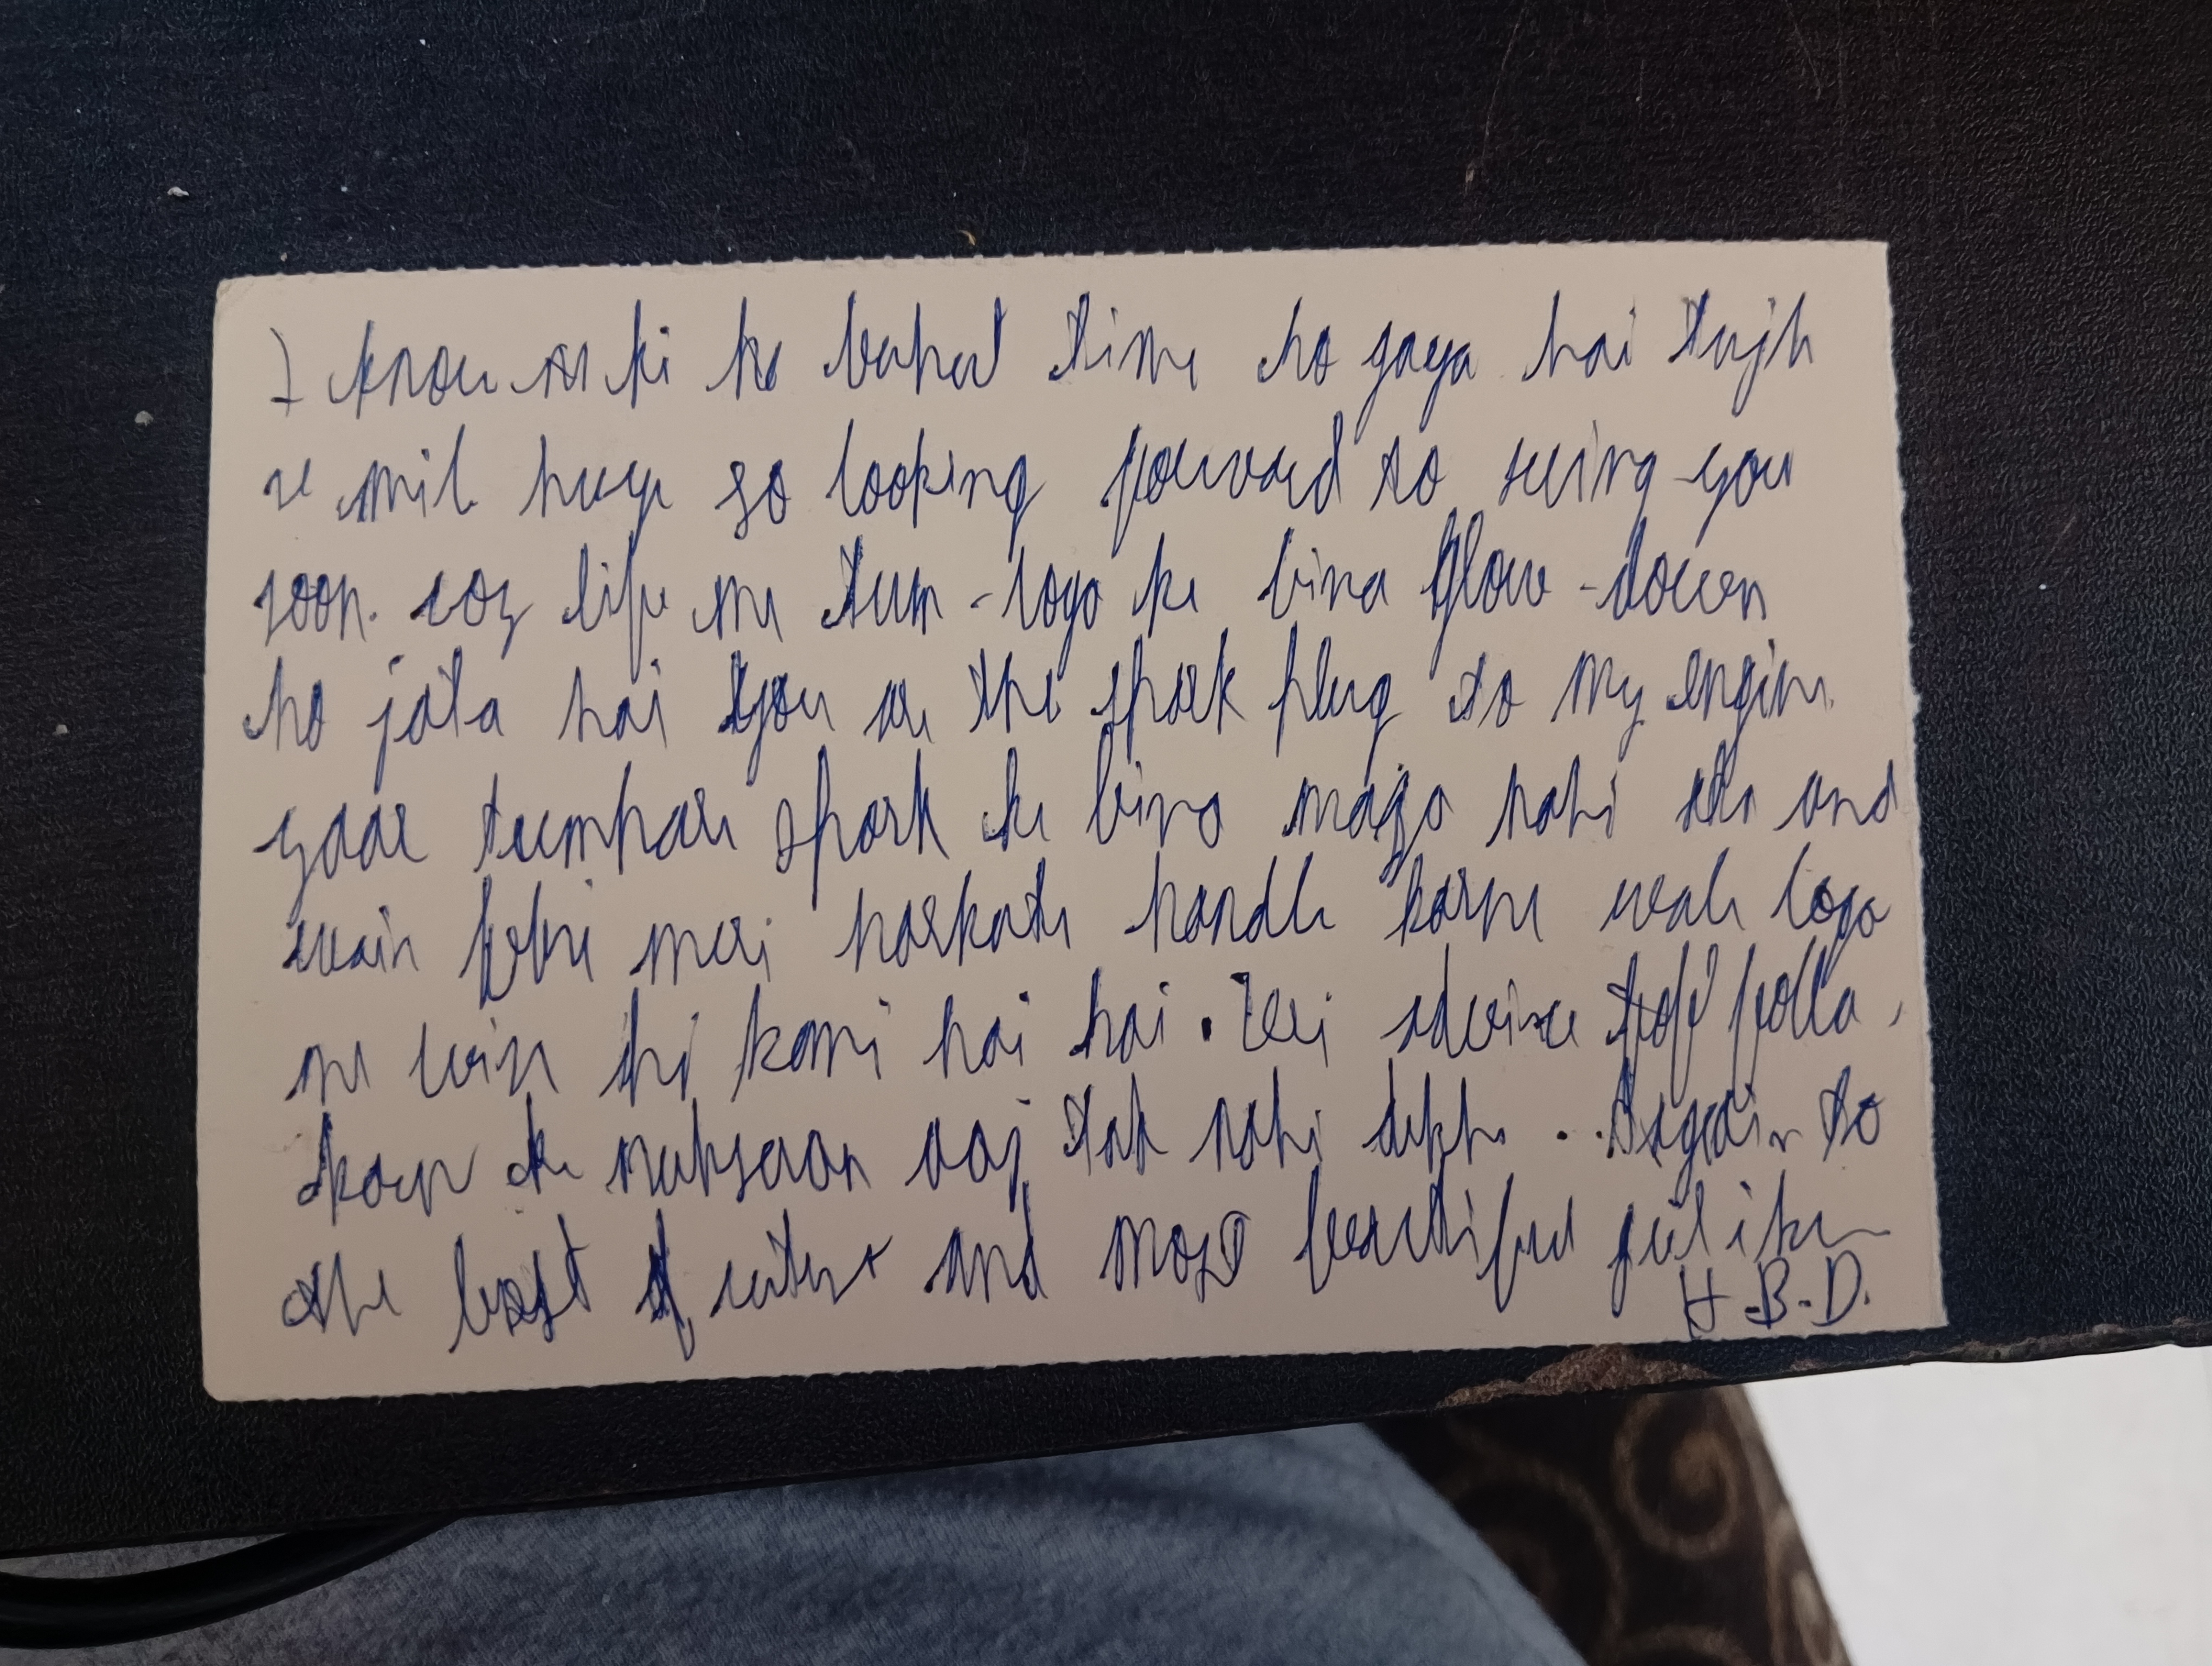 I know ki bahot time ho gaya hai tujh
se mile huye so looking forward to seeing you
soon. coz life me tum-logo ke bina glow-down
ho jata hai you are the spark plug to my engine.
yaar tumhare spark ke bina maza nahi ata and
wain bhi meri harkate handle karne wale logo
me bhi kami hai hai. Teri advice follow
karne ke nuksaan aaj tak nahi dikhe .. Again to
the best of sister and most beautiful
H.B.D.